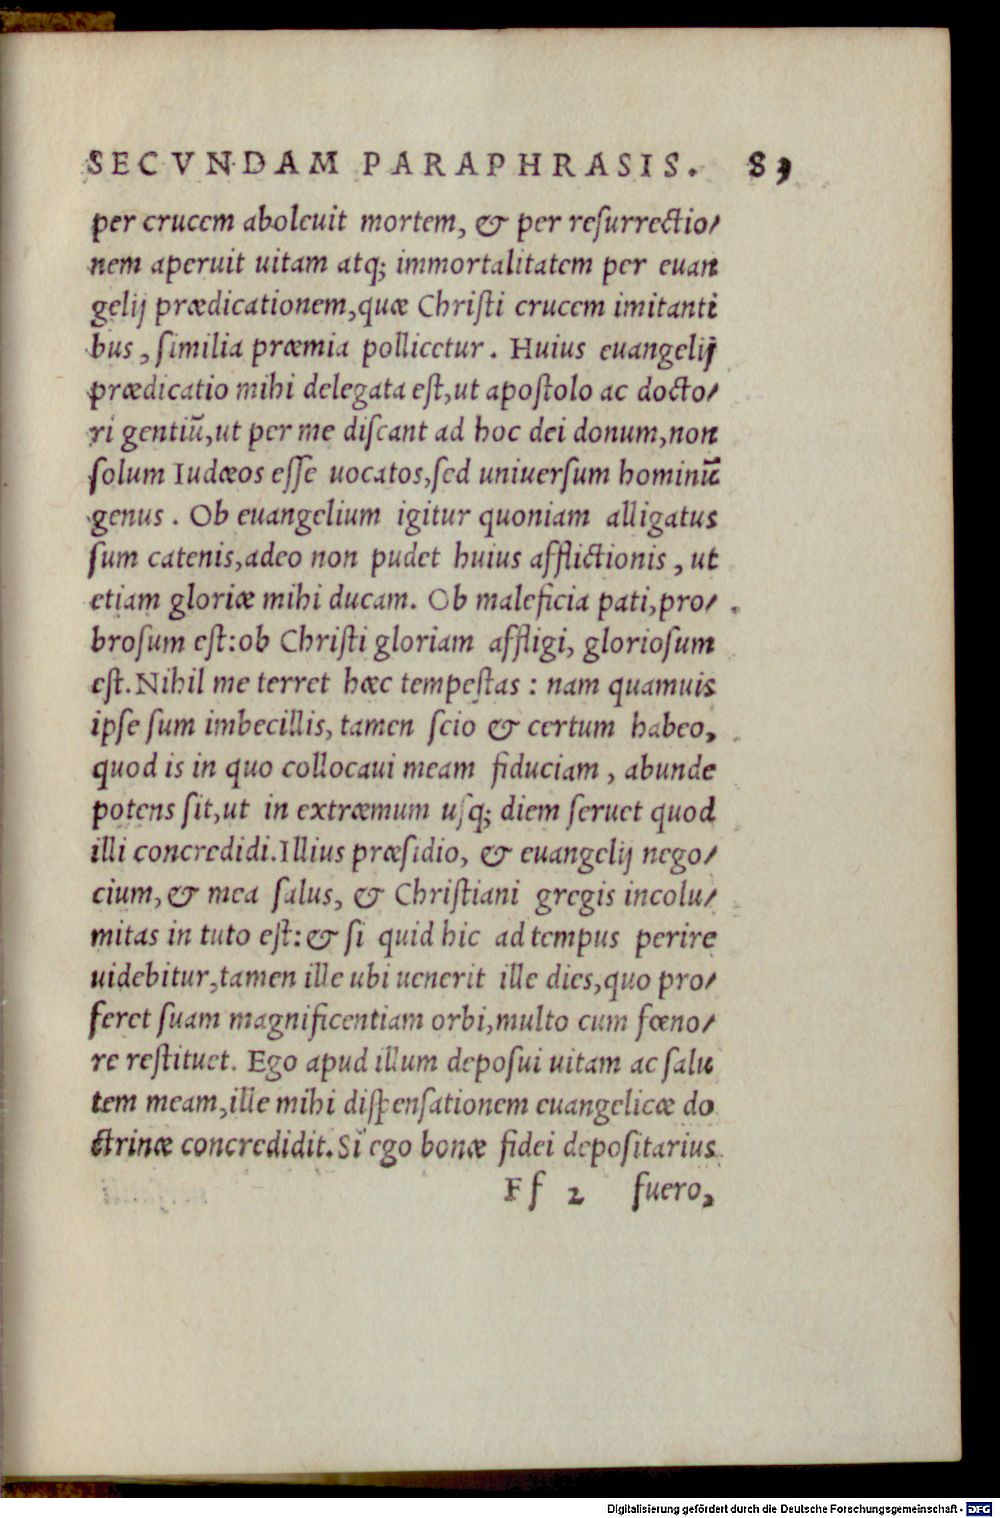 SECVNDAM PARAPHRASIS. 89
per crucem aboleuit mortem, & per reſurrectio/
nem aperuit uitam atq; immortalitatem per euan
gelij prædicationem,quæ Chriſti crucem imitanti
bus, ſimilia præmia pollicetur. Huius euangelij
prædicatio mihi delegata eſt,ut apoſtolo ac docto/
ri gentiū,ut per me diſcant ad hoc dei donum,non
ſolum Iudæos eſſe uocatos,ſed uniuerſum hominū
genus. Ob euangelium igitur quoniam alligatus
ſum catenis,adeo non pudet huius afflictionis, ut
etiam gloriæ mihi ducam. Ob maleficia pati,pro/
broſum eſt:ob Chriſti gloriam affligi, glorioſum
eſt.Nihil me terret hæc tempeſtas: nam quamuis
ipſe ſum imbecillis, tamen ſcio & certum habeo,
quod is in quo collocaui meam fiduciam, abunde
potens ſit,ut in extræmum uſq; diem ſeruet quod
illi concredidi.Illius præſidio, & euangelij nego/
cium,& mea ſalus, & Chriſtiani gregis incolu/
mitas in tuto eſt:& ſi quid hic ad tempus perire
uidebitur,tamen ille ubi uenerit ille dies,quo pro/
feret ſuam magnificentiam orbi,multo cum fœno/
re reſtituet. Ego apud illum depoſui uitam ac ſalu
tem meam,ille mihi diſpenſationem euangelicæ do
ctrinæ concredidit.Si ego bonæ fidei depoſitarius
Ff 2 fuero,
Digitalisierung gefördert durch die Deutsche Forschungsgemeinschaft - DFG